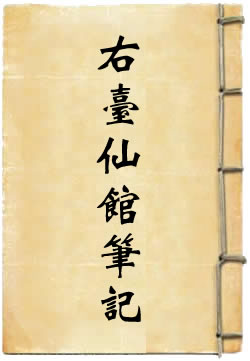 右臺仙館筆記